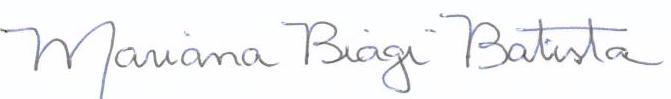 Mariana Biagi Batista